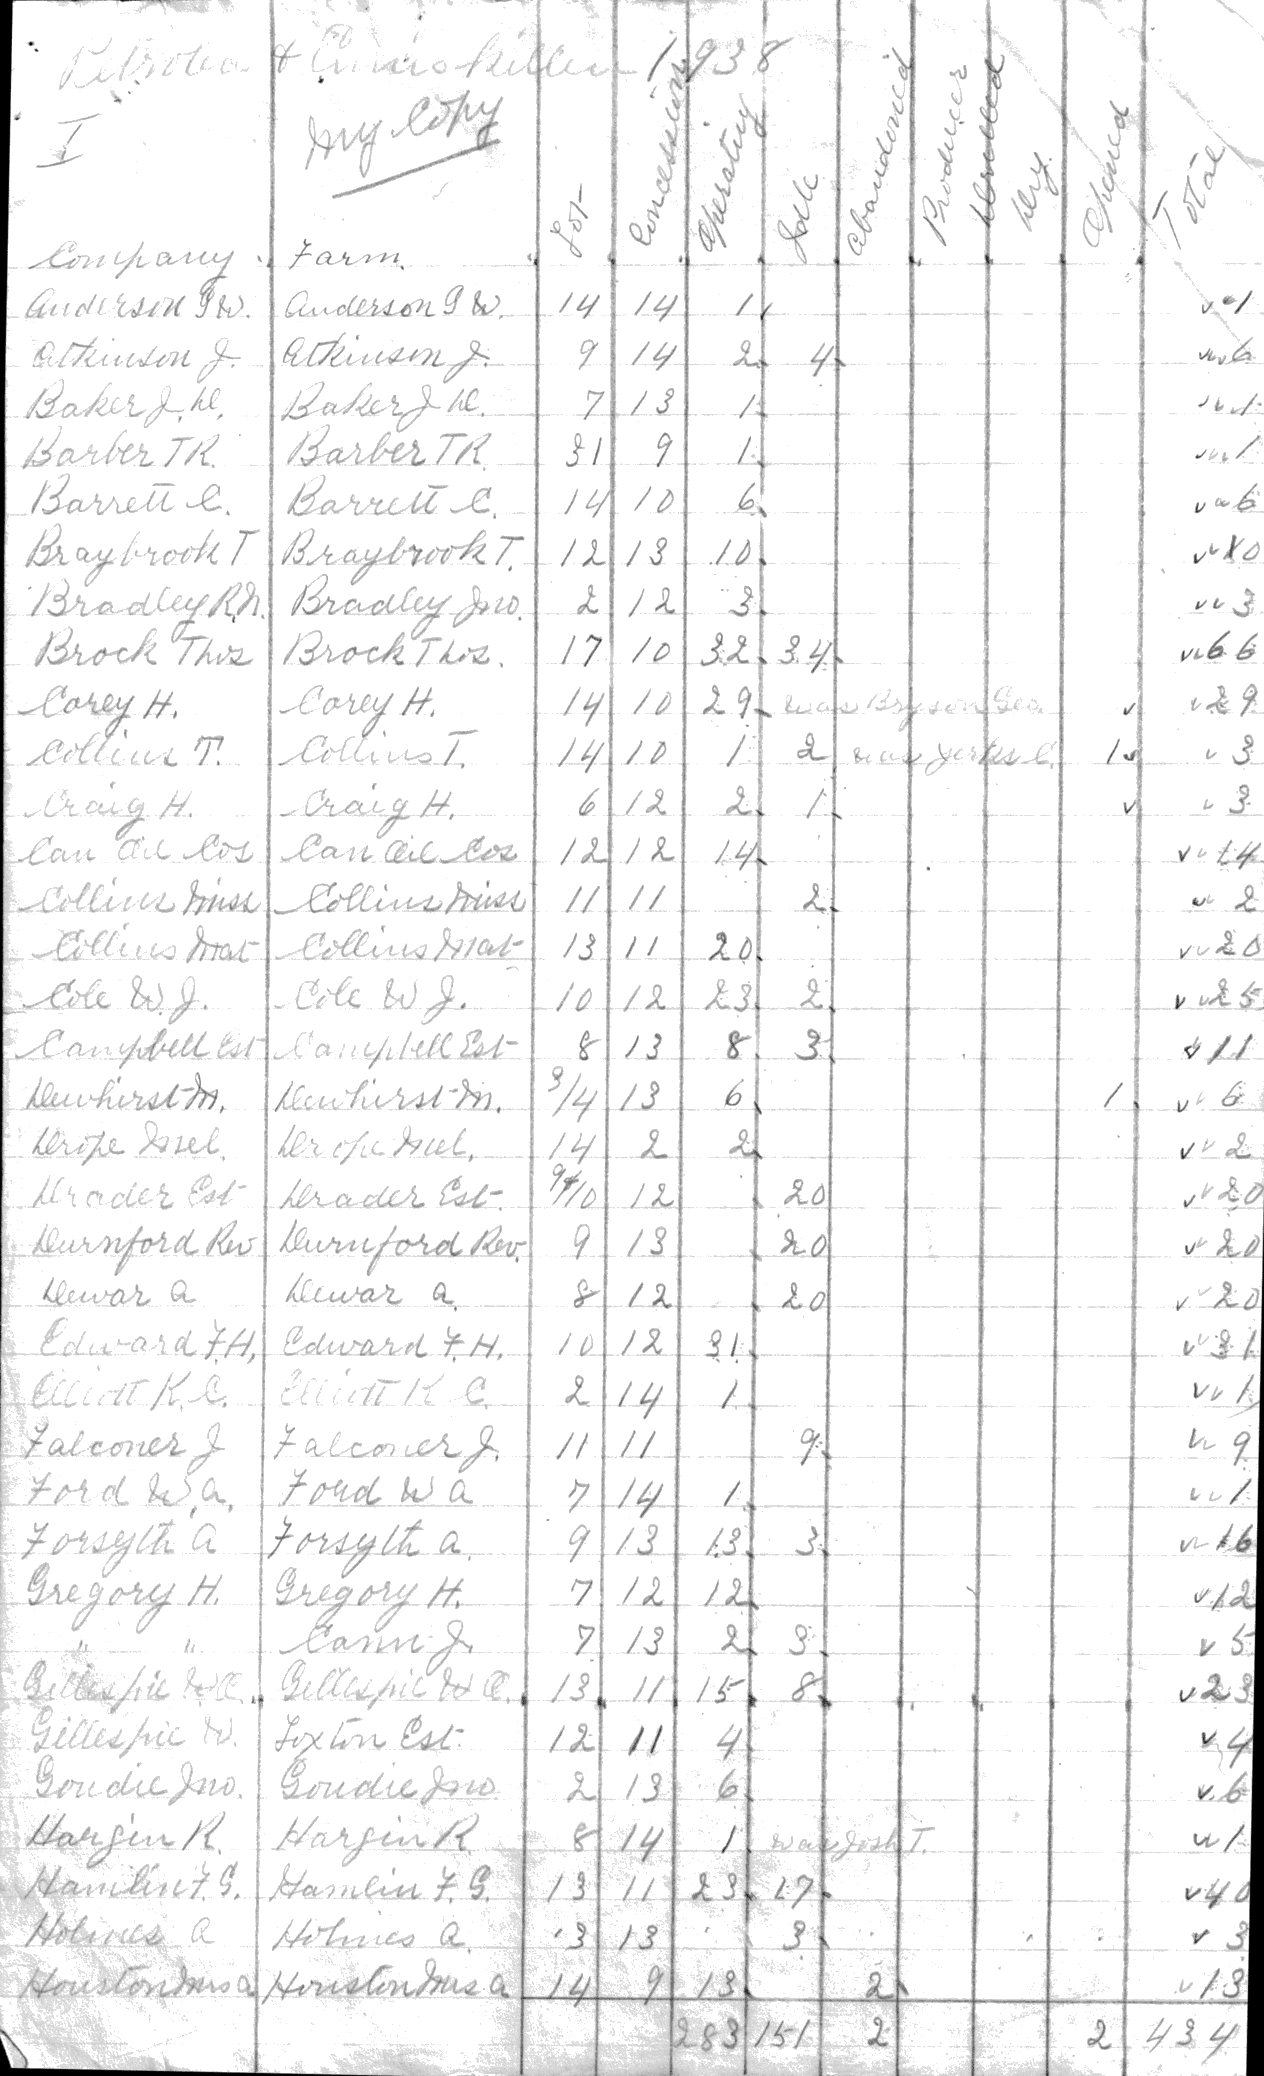 Petrolea & Enniskillen 1938
I
My Copy
Company Farm. Lot Concession Operating Idle Abandoned Producer Drilled Dry. Opened Total
Anderson G W. Anderson G W. 14 14 1 1
Atkinson J. Atkinson J. 9 14 2 4 6
Baker J. D. Baker J D. 7 13 1 1
Barber T R. Barber T R. 31 9 1 1
Barrett C. Barrett C. 14 10 6 6
Braybrook T Braybrook T. 12 13 10 10
Bradley R. N. Bradley Jno. 2 12 3 3
Brock Thos Brock Thos. 17 10 32 34 66
Corey H. Corey H. 14 10 29 was Bryson Geo. 29
Collins T. Collins T. 14 10 1 2 was Yerks C. 1 3
Craig H. Craig H. 6 12 2 1 3
Can Oil Cos Can Oil Cos 12 12 14 14
Collins Miss Collins Miss 11 11 2 2
Collins Mat Collins Mat 13 11 20 20
Cole W. J. Cole W J. 10 12 23 2 25
Campbell Est Campbell Est 8 13 8 3 11
Dewhirst M. Dewhirst M. 3/4 13 6 1 6
Drope Mel. Drope Mel. 14 2 2 2
Drader Est Drader Est. 9/10 12 20 20
Durnford Rev Durnford Rev. 9 13 20 20
Dewar A Dewar A. 8 12 20 20
Edward F. H. Edward F. H. 10 12 31 31
Elliott K. C. Elliott K C. 2 14 1 1
Falconer J Falconer J. 11 11 9 9
Ford W. A. Ford W A 7 14 1 1
Forsyth A Forsyth A. 9 13 13 3 16
Gregory H. Gregory H. 7 12 12 12
" " Cann J. 7 13 2 3 5
Gillespie W C. Gillespie W C. 13 11 15 8 23
Gillespie W. Loxton Est. 12 11 4 4
Goudie Jno. Goudie Jno 2 13 6 6
Hargin R. Hargin R 8 14 1 was Josh T. 1
Hamlin F. G. Hamlin F. G. 13 11 23 17 40
Holmes A Holmes A. 3 13 3 3
Houston Mrs A Houston Mrs A 14 9 13 2 13
283 151 2 2 434